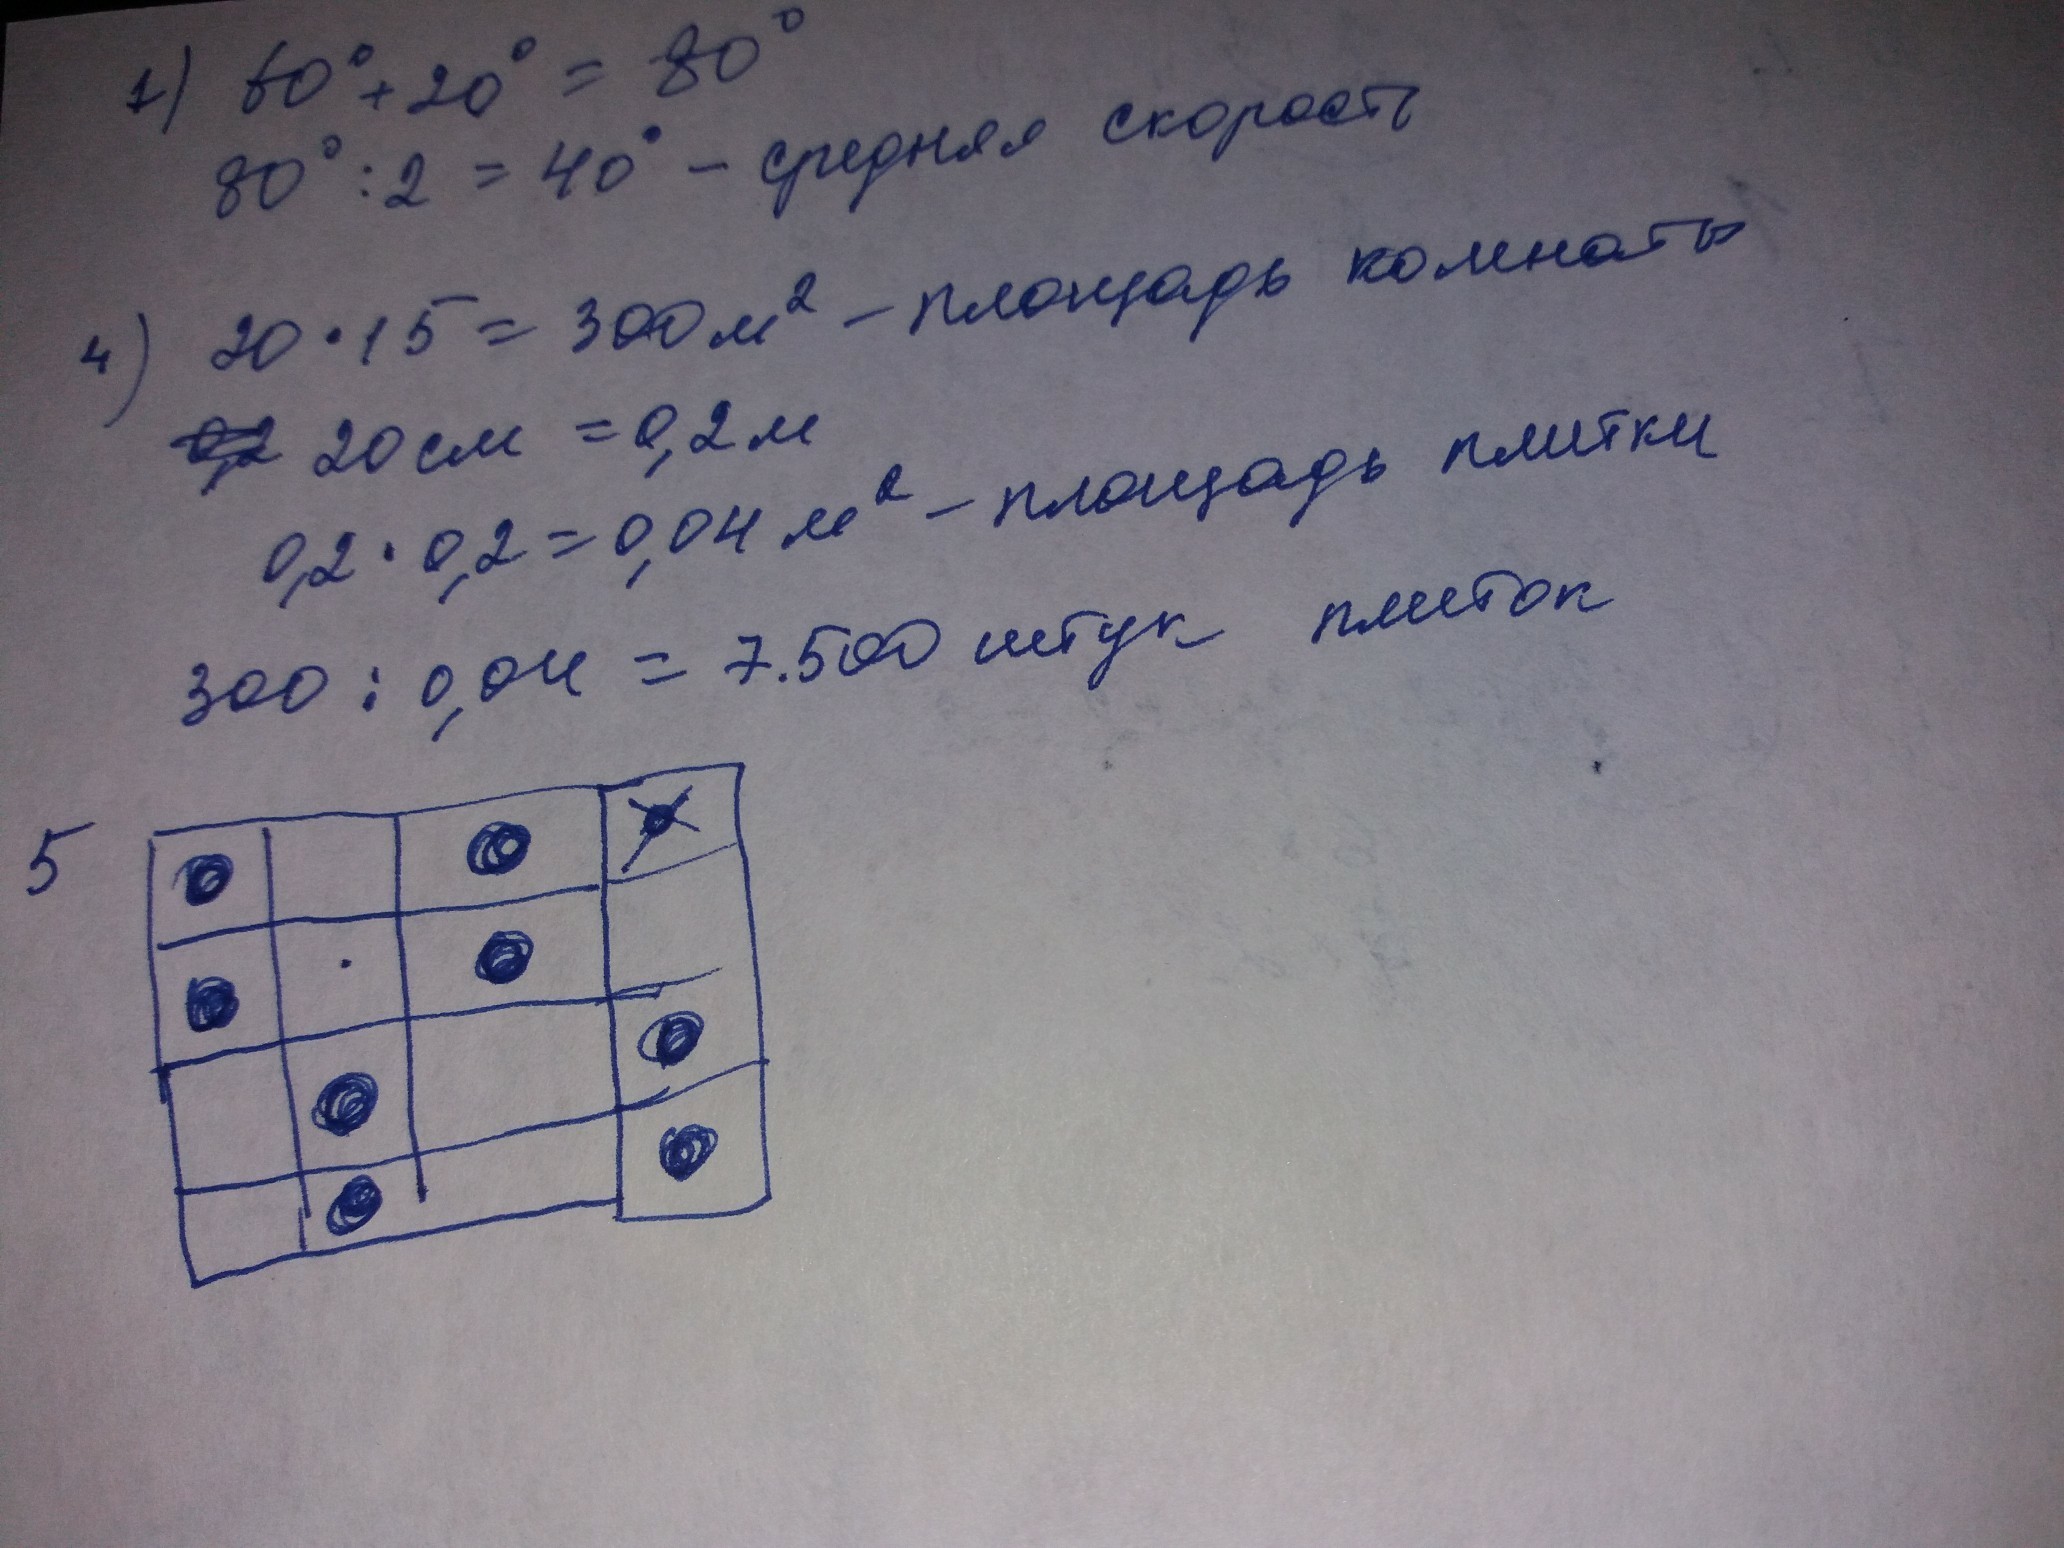 1) 60° + 20° = 80°
80° : 2 = 40° - средняя скорость
4) 20 · 15 = 300 м² - площадь комнаты
20 см = 0,2 м
0,2 · 0,2 = 0,04 м² - площадь плитки
300 : 0,04 = 7.500 штук плиток
5